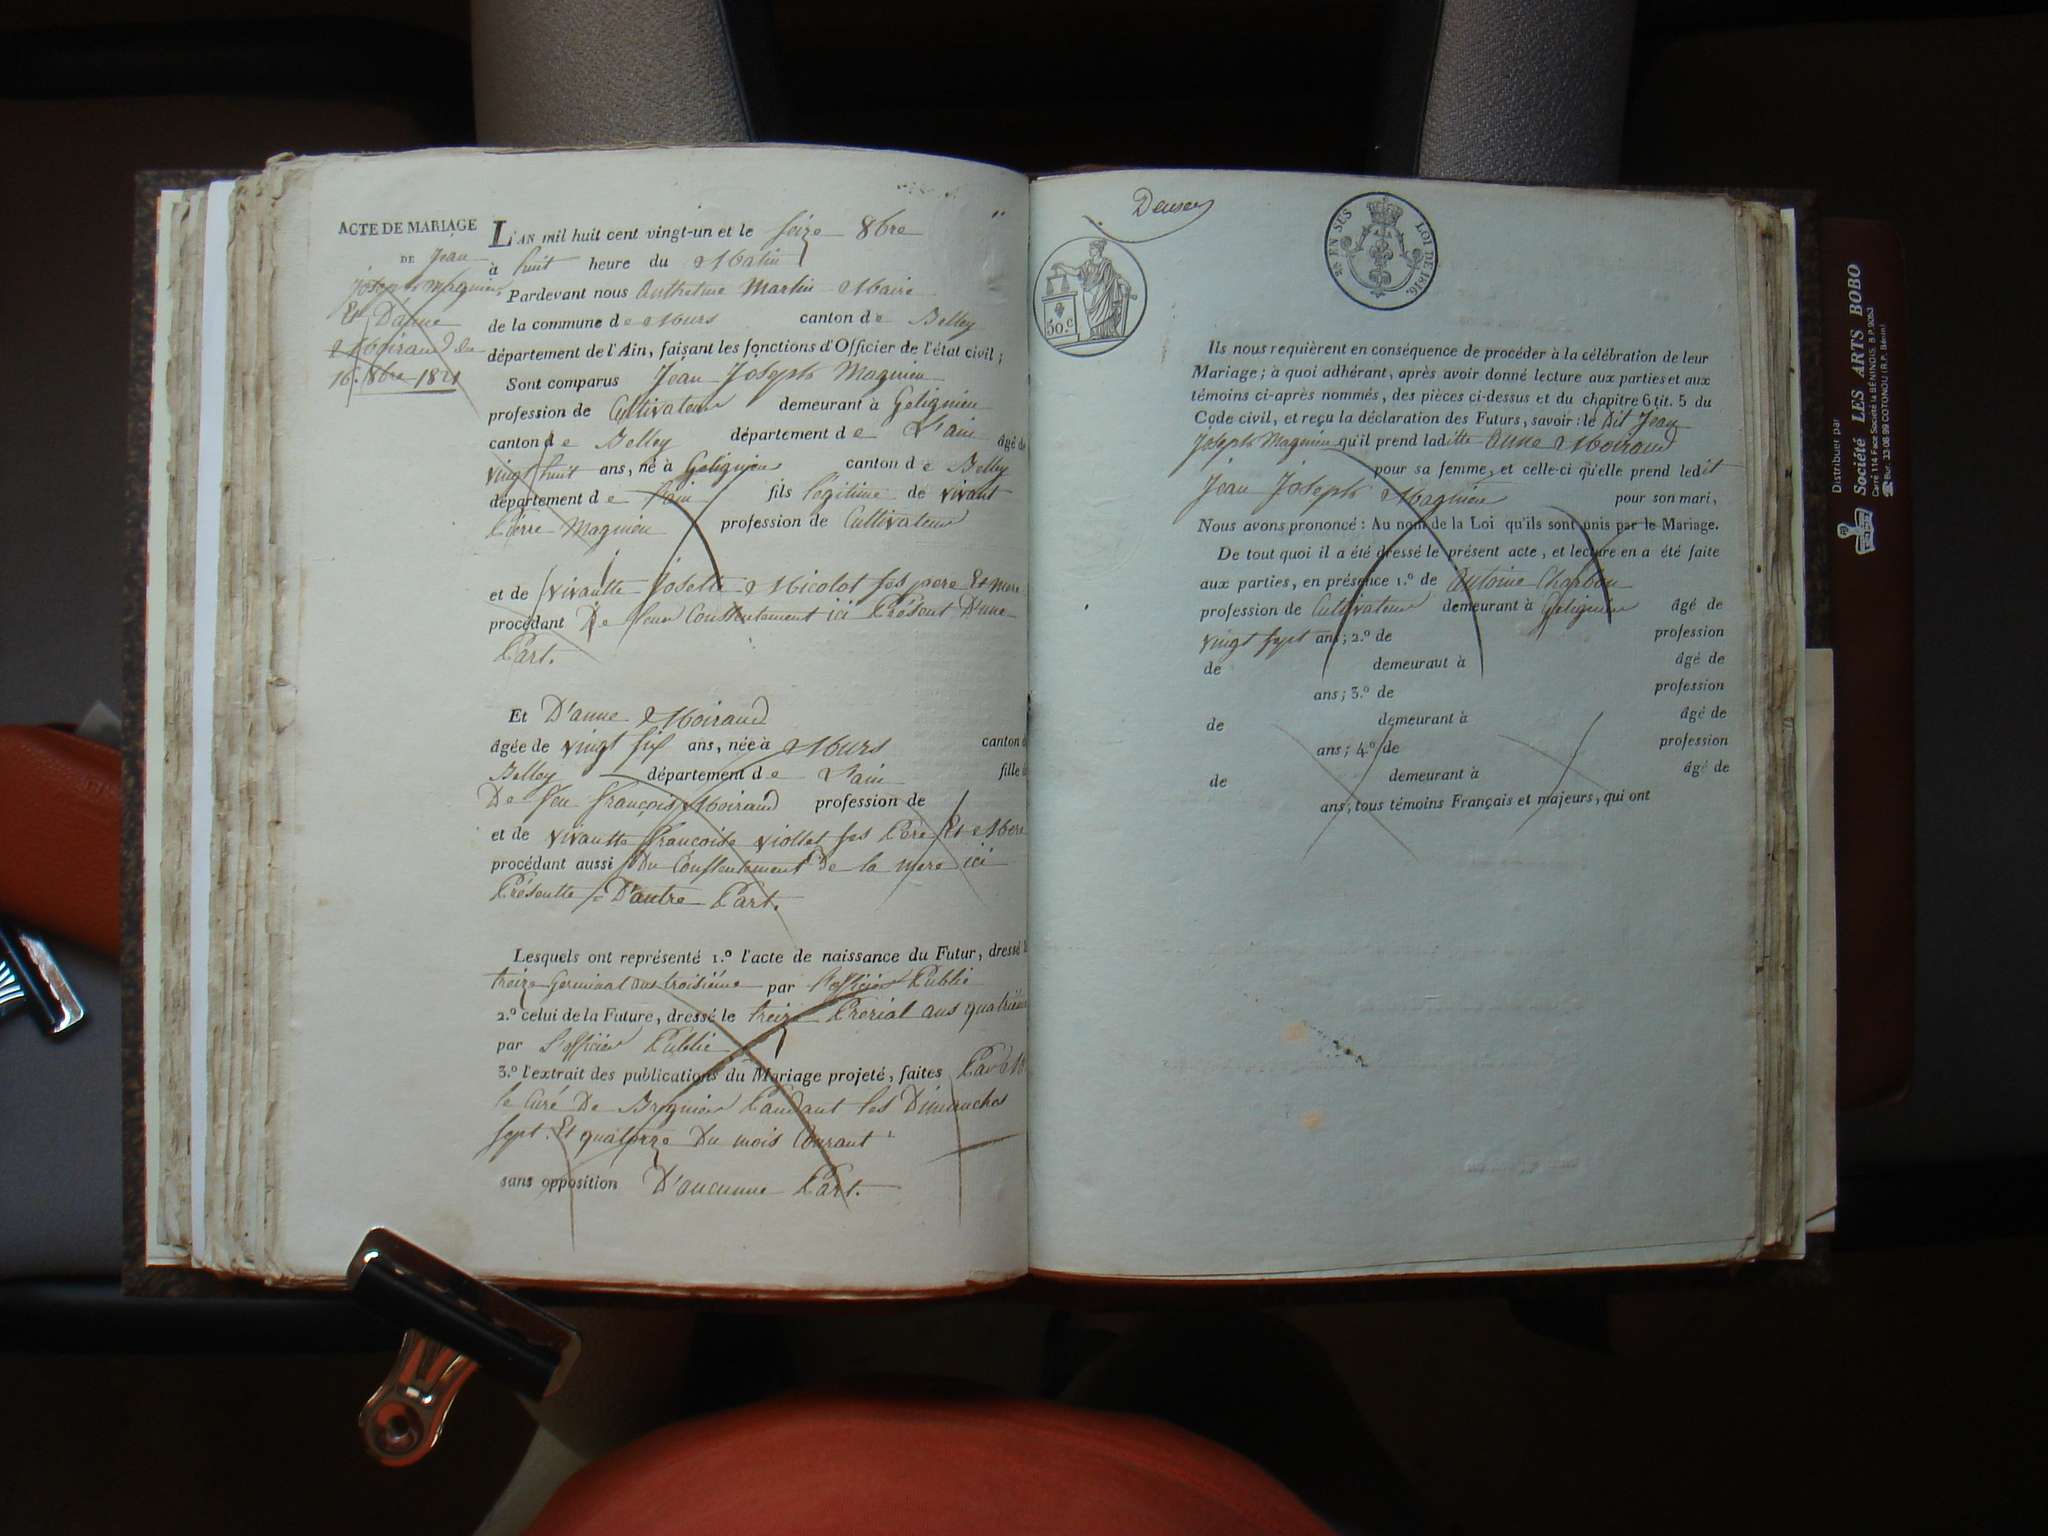 ACTE DE MARIAGE
DE Jean
Joseph Magnien
Et D'anne
Moiraud du
16. 8bre 1821
L'AN mil huit cent vingt-un et le seize 8bre
à huit heure du Matin
Pardevant nous Anthelme Martin Maire
de la commune de Murs canton de Belley
département de l'Ain, faisant les fonctions d'Officier de l'état civil;
Sont comparus Jean Joseph Magnien
profession de Cultivateur demeurant à Gelignieu
canton de Belley département de L'ain âgé de
vingt huit ans, né à Gelignieu canton de Belley
département de l'ain fils légitime de vivant
Pierre Magnien profession de Cultivateur
et de vivantte Josette Nicolot ses pere Et mere
procédant De leur Consentement ici Présent D'une
Part.
Et D'anne Moiraud
âgée de vingt six ans, née à Murs canton
Belley département de L'ain fille
De feu françois Moiraud profession de
et de vivantte françoise viollet ses Père Et Mere
procédant aussi Du Consentement De la mere ici
Présentte D'autre Part.
Lesquels ont représenté 1.º l'acte de naissance du Futur, dressé
treize Germinal ans troisième par L'officier Public
2.º celui de la Future, dressé le treize Prerial ans quatrième
par L'officier Public
3.º l'extrait des publications du Mariage projeté, faites
le Curé De Brignier Pandant les Dimanches
sept. Et quatorze Du mois Courant
sans opposition D'aucunne Part.
50.c
25 EN SUS LOI DE 1816.
Ils nous requièrent en conséquence de procéder à la célébration de leur
Mariage; à quoi adhérant, après avoir donné lecture aux parties et aux
témoins ci-après nommés, des pièces ci-dessus et du chapitre 6 tit. 5 du
Code civil, et reçu la déclaration des Futurs, savoir: le dit Jean
Joseph Magnien qu'il prend laditte Anne Moiraud
pour sa femme, et celle-ci qu'elle prend ledit
Jean Joseph Magnien pour son mari,
Nous avons prononcé: Au nom de la Loi qu'ils sont unis par le Mariage.
De tout quoi il a été dressé le présent acte, et lecture en a été faite
aux parties, en présence 1.º de Antoine Charbon
profession de Cultivateur demeurant à Gelignieu âgé de
vingt sept ans; 2.º de profession
de demeurant à âgé de
ans; 3.º de profession
de demeurant à âgé de
ans; 4.º de profession
de demeurant à âgé de
ans, tous témoins Français et majeurs, qui ont
Distribuer par
Société LES ARTS BOBO
Carré 114 Face Société la BÉNINOIS, B.P. 9053
Bur. 33 08 99 COTONOU (R.P. Bénin)